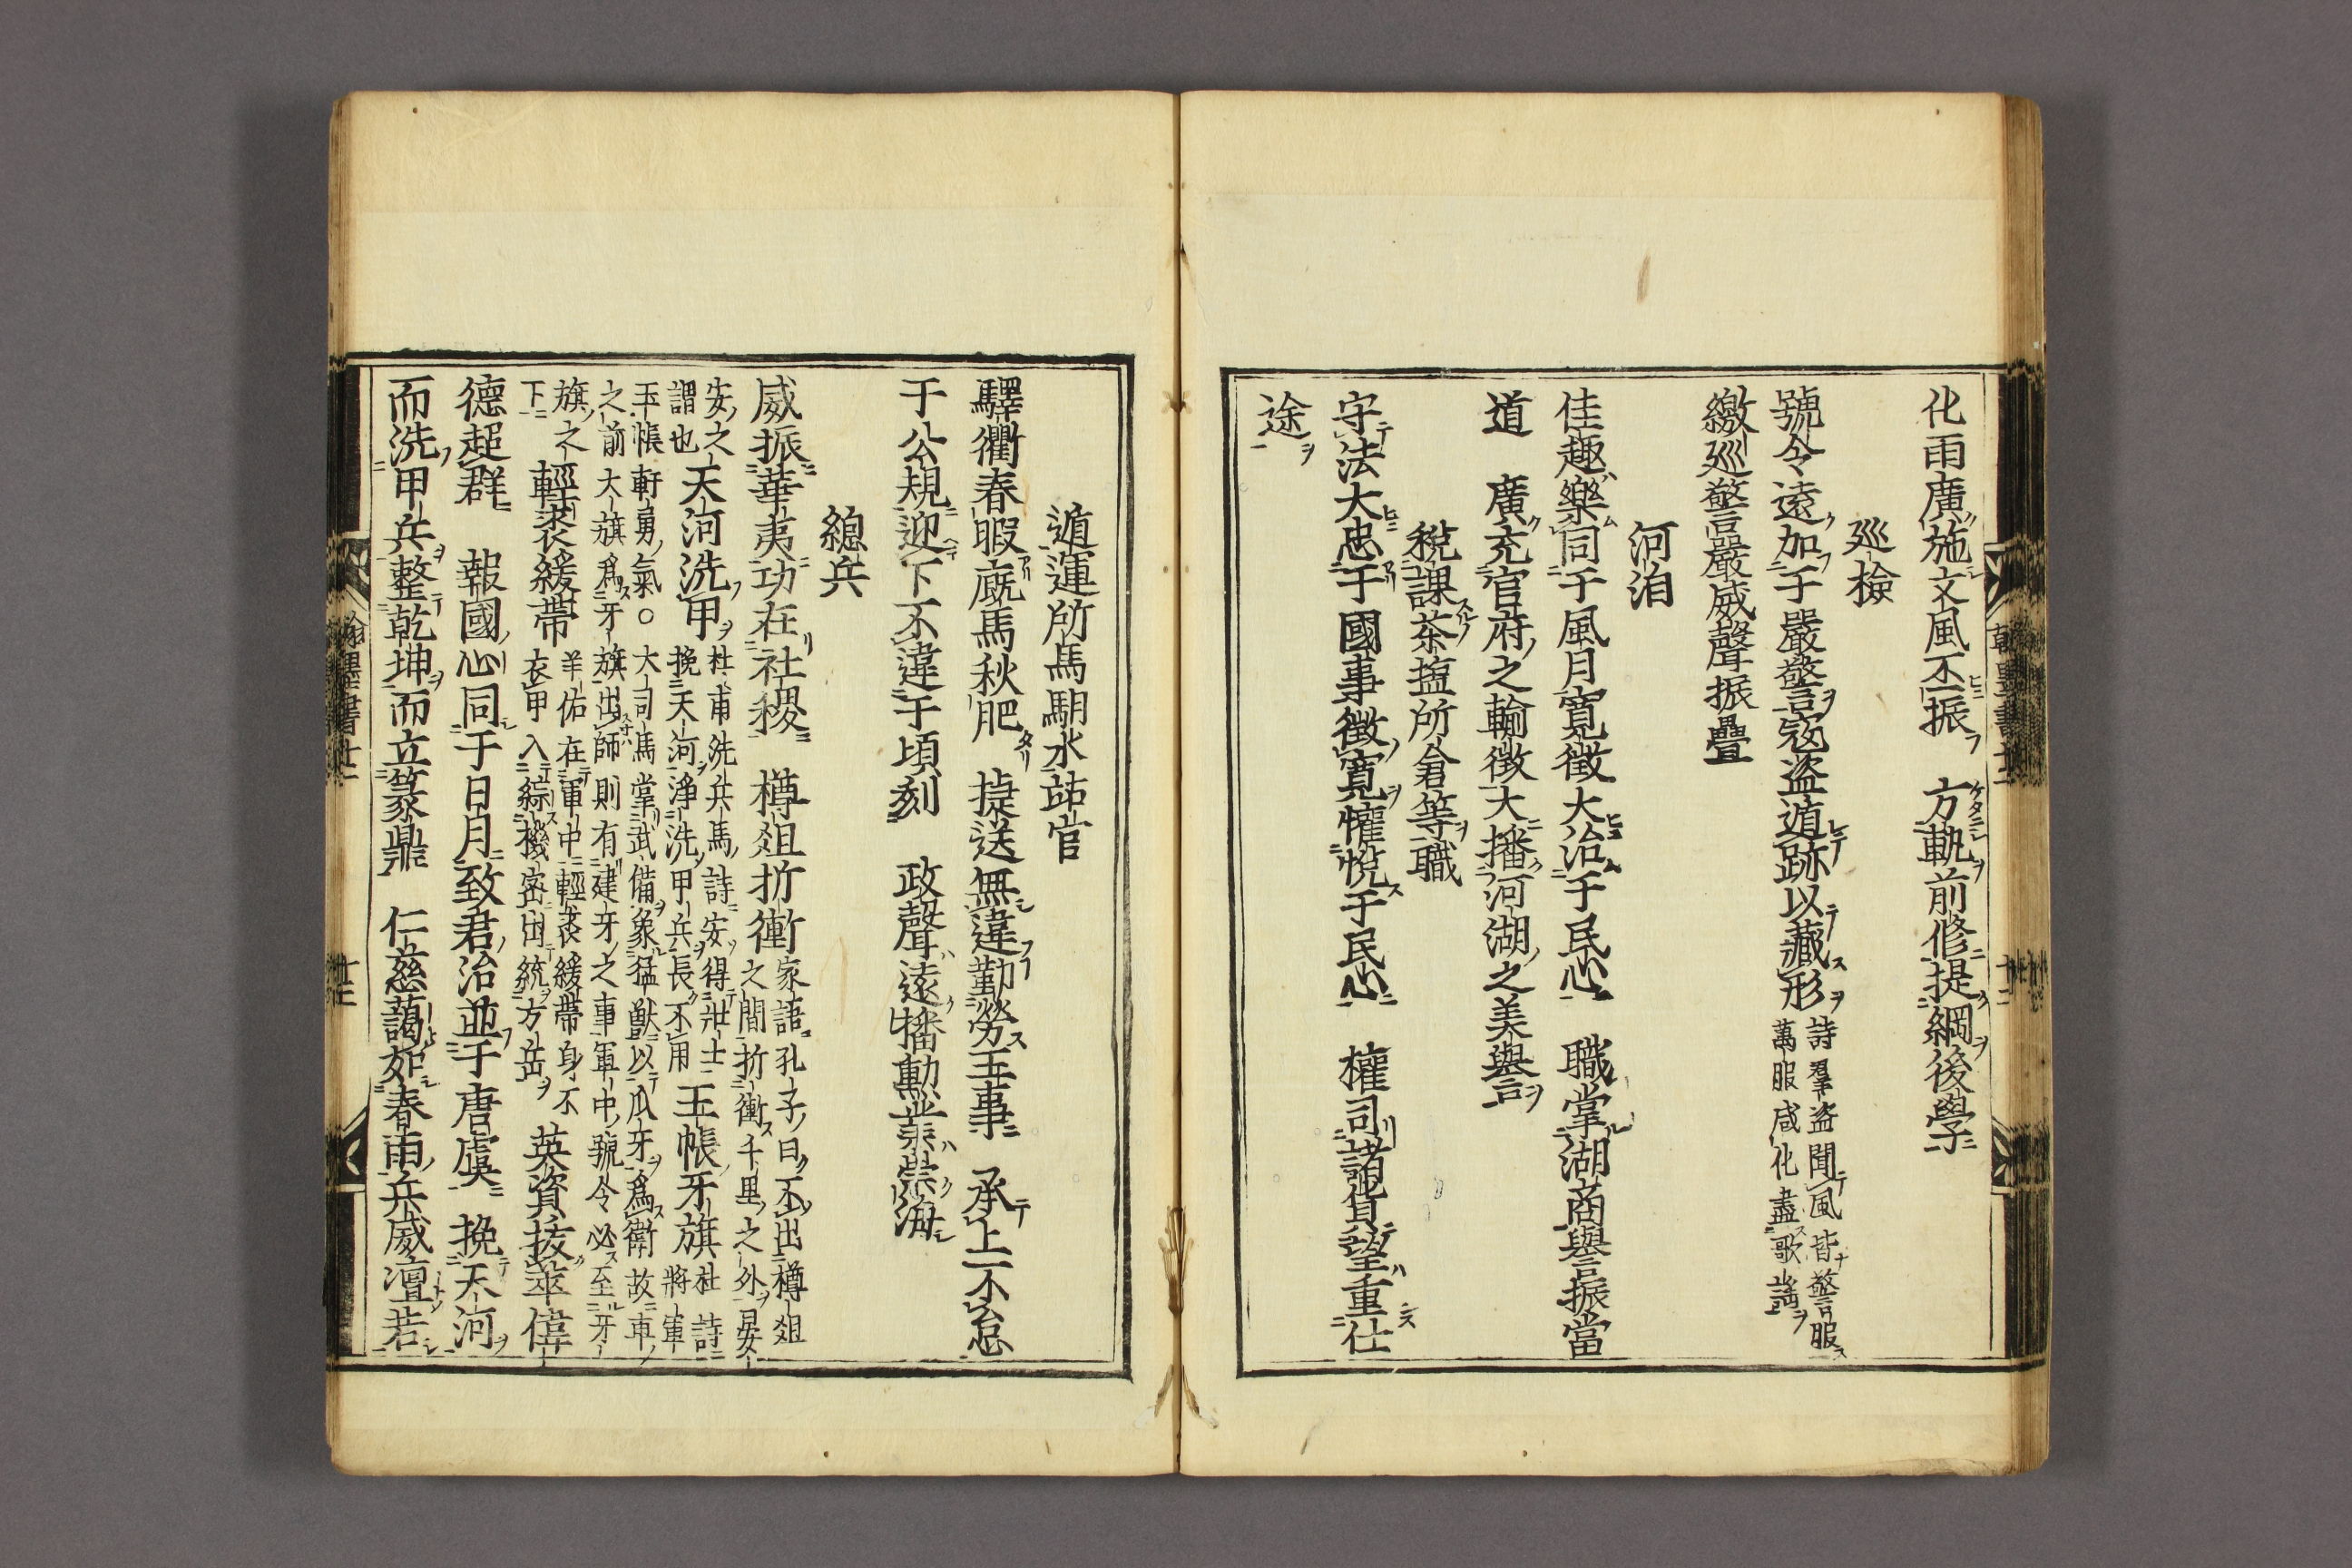 化雨廣施文風丕振　方軌前修提綱後學
巡檢
號令遠加于嚴警寇盜遁跡以藏形
詩羣盗聞風皆警服
萬服咸化盡歌謡
繳巡警嚴威聲振疊
河泊
佳趣樂同于風月寛徴大治于民心　職掌湖商譽振當
道　廣充官府之輸徴大播河湖之美譽
稅課茶塩所倉等職
守法大忠于國事徴寛懽悅于民心　權司諸貨望重仕
途
遁運所馬駅水站官
驛衢春暇廐馬秋肥　捷送無違勤勞王事　承上不怠
于公規迎下不違于頃刻　政聲遠播勳業崇海
總兵
威振華夷功在社稷　樽俎折衝
家語孔子曰不出樽俎
之間折衝千里之外晏
安之
謂也
天河洗甲
杜甫洗兵馬詩安得壯士
挽天河浄洗甲兵長不用
玉帳牙旗
杜詩
將軍
玉帳軒勇氣○大司馬掌武備象猛獣以爪牙爲衛故軍
之前大旗爲牙旗出師則有建牙之事軍中號令必至牙
旗之
下
輕裘緩帶
羊佑在軍中輕裘緩帶身不
衣甲入綜機密出統方岳
英資拔萃偉
德超群　報國心同于日月致君治並于唐虞　挽天河
而洗甲兵整乾坤而立篆鼎　仁慈藹如春雨兵威凛若
翰墨書
十二